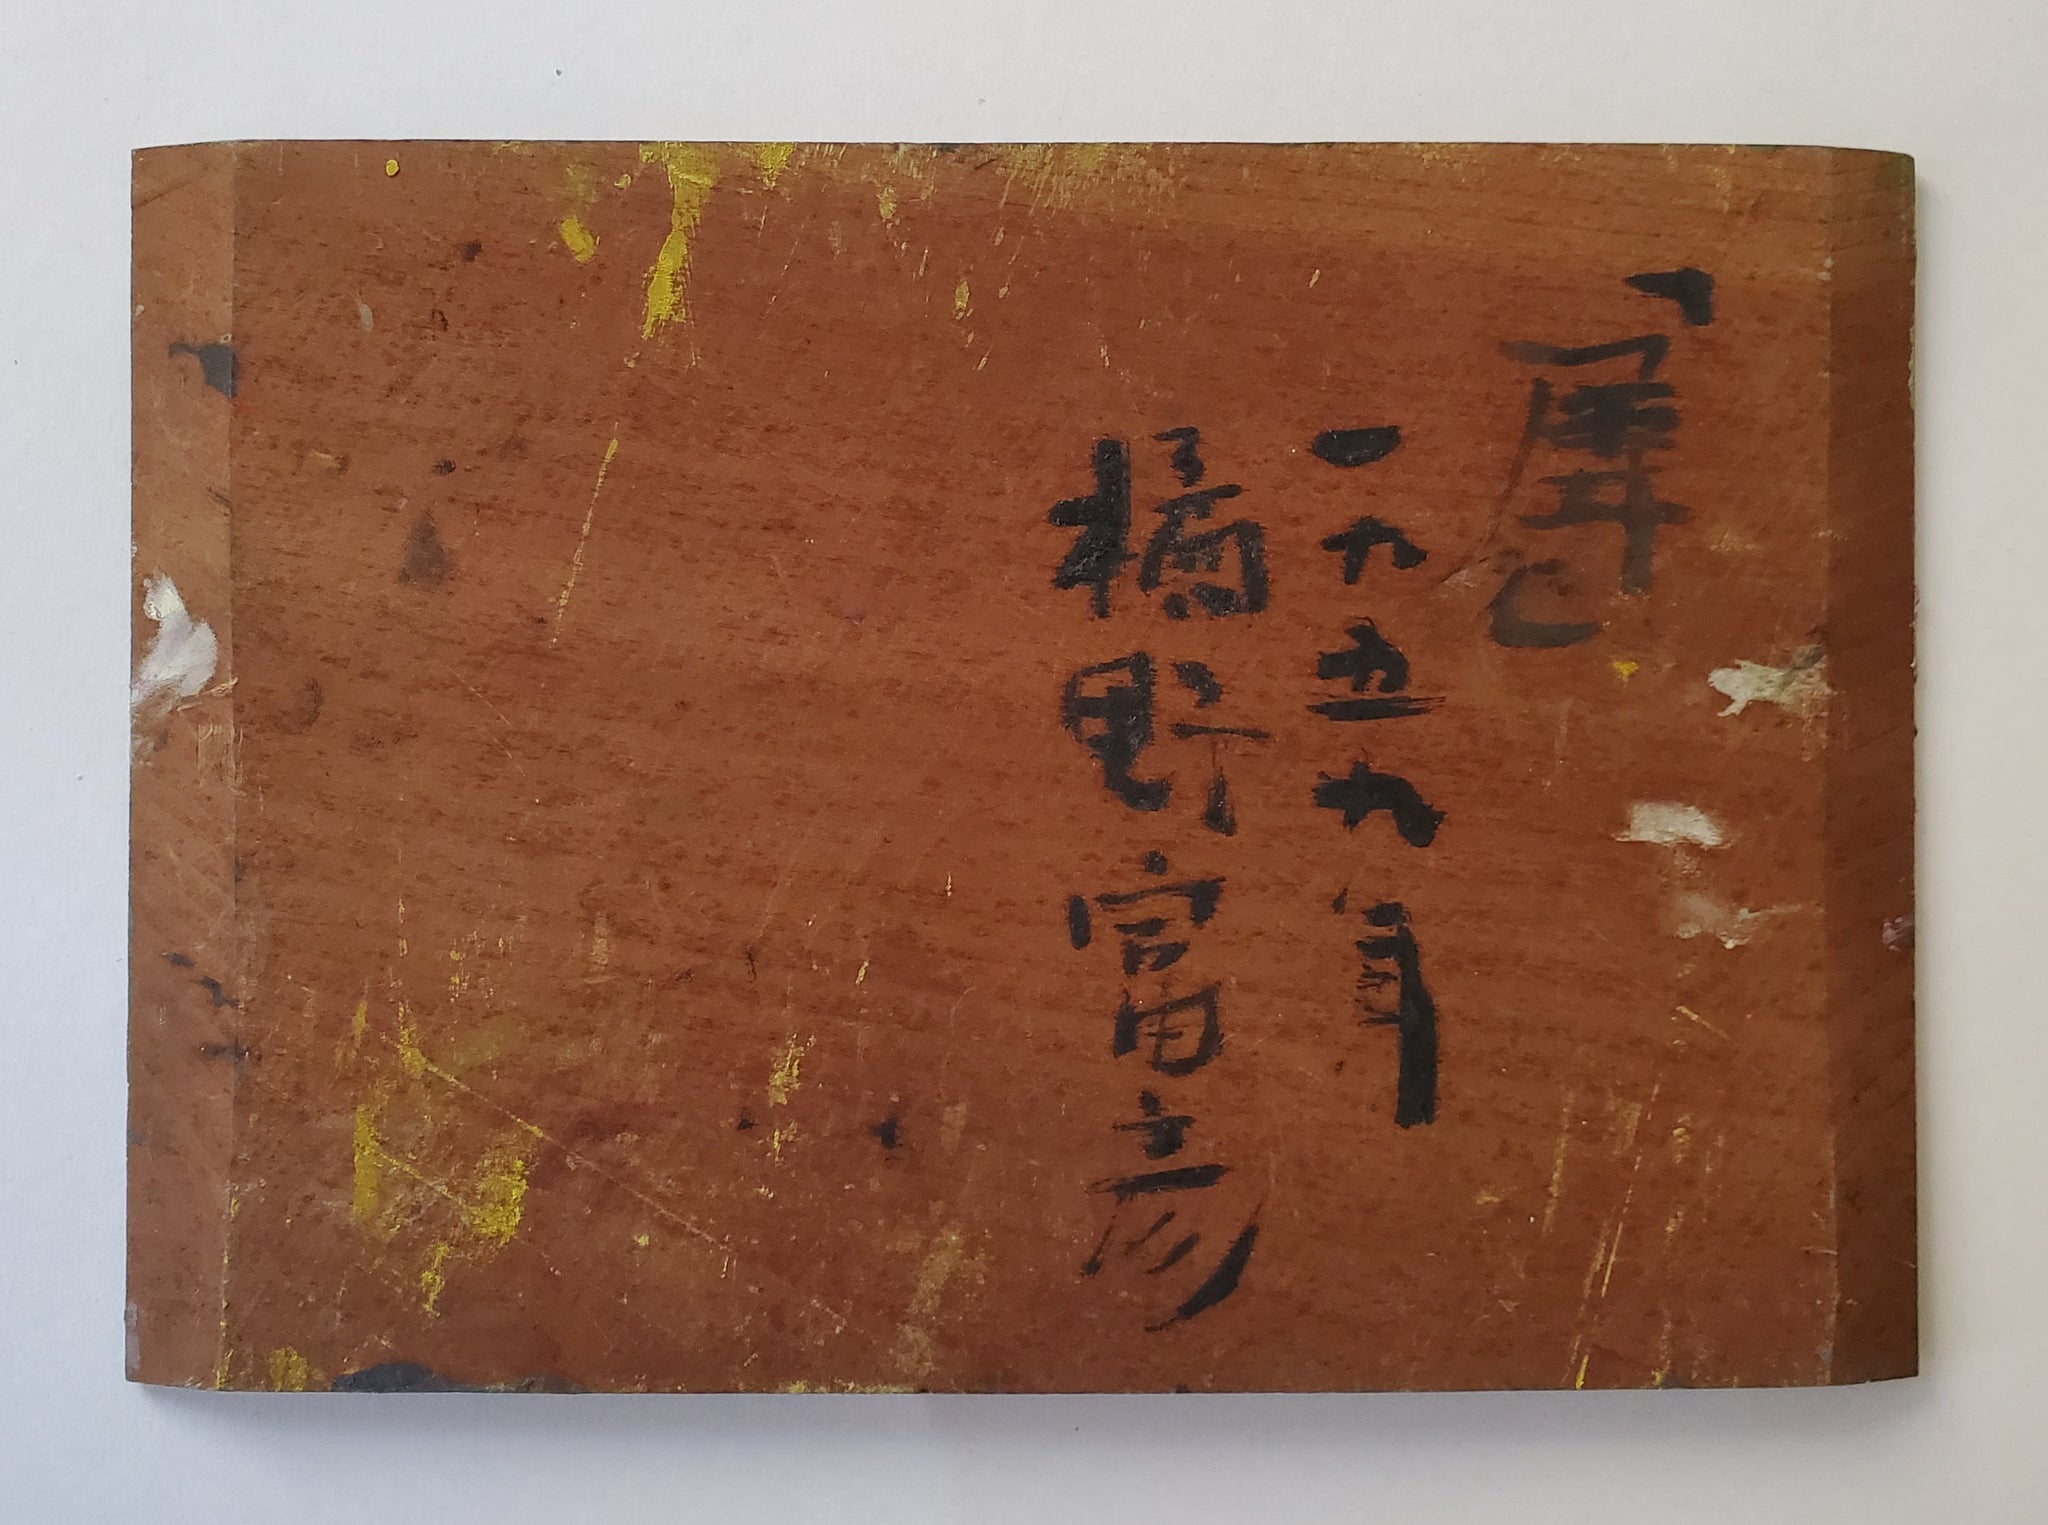 「犀」
一九五九年
橘野富彦